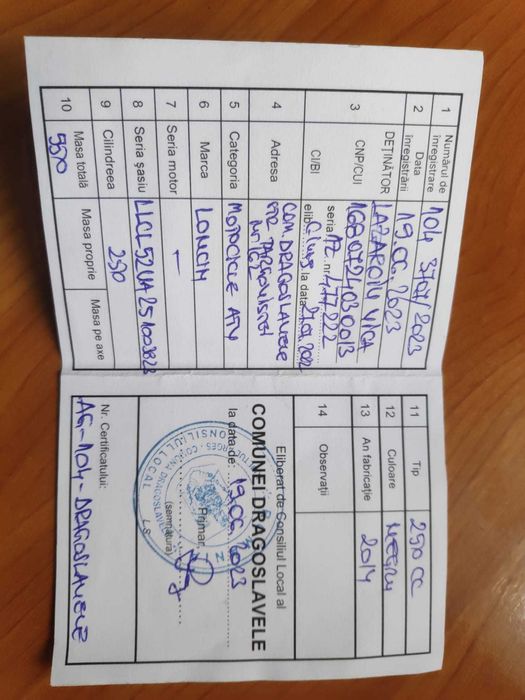 1 Numărul de înregistrare 104 3707/2023
2 Data înregistrării 19.06.2023
DEȚINĂTOR LAZAROIU VICA
3 CNP/CUI
CI/BI seria nr. 477222
elib. la data
4 Adresa COM. DRAGOSLAVELE
5 Categoria MOTOCICLE ATV
6 Marca LONCIN
7 Seria motor —
8 Seria șasiu
9 Cilindreea 250
10 Masa totală 550 Masa proprie Masa pe axe
11 Tip 250 CC
12 Culoare NEGRU
13 An fabricație 2014
14 Observații
Eliberat de Consiliul Local al
COMUNEI DRAGOSLAVELE
la data de: 19.06.2023
Primar,
(semnătura)
L.S
Nr. Certificatului:
AG-104-DRAGOSLAVELE